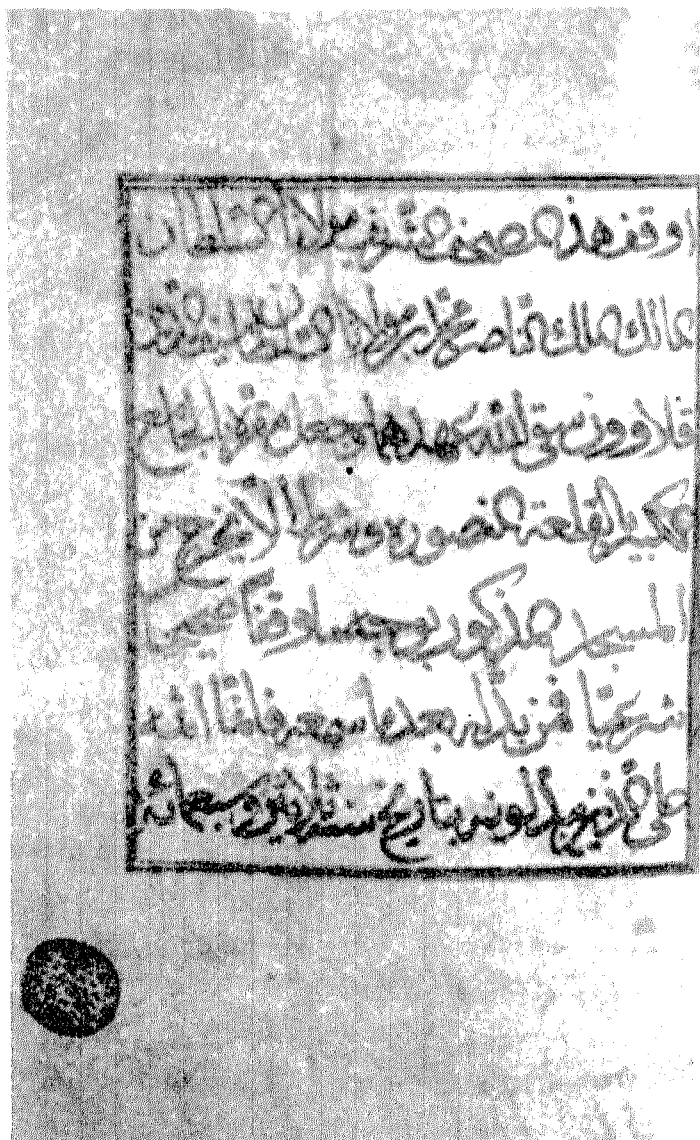 اوقف هذا المصحف الشريف مولانا السلطان
المالك الملك الناصر محمد ابن مولانا السلطان الملك المنصور
قلاوون سقى الله عهدهما وجعل مقره الجامع
الكبير بالقلعة المنصورة وشرط ألا يخرج من
المسجد المذكور بوجه وقفا صحيحا
شرعيا فمن بدله بعد ما سمعه فانما اثمه
على الذين يبدلونه بتاريخ سنة ثلاثين وسبعمائة